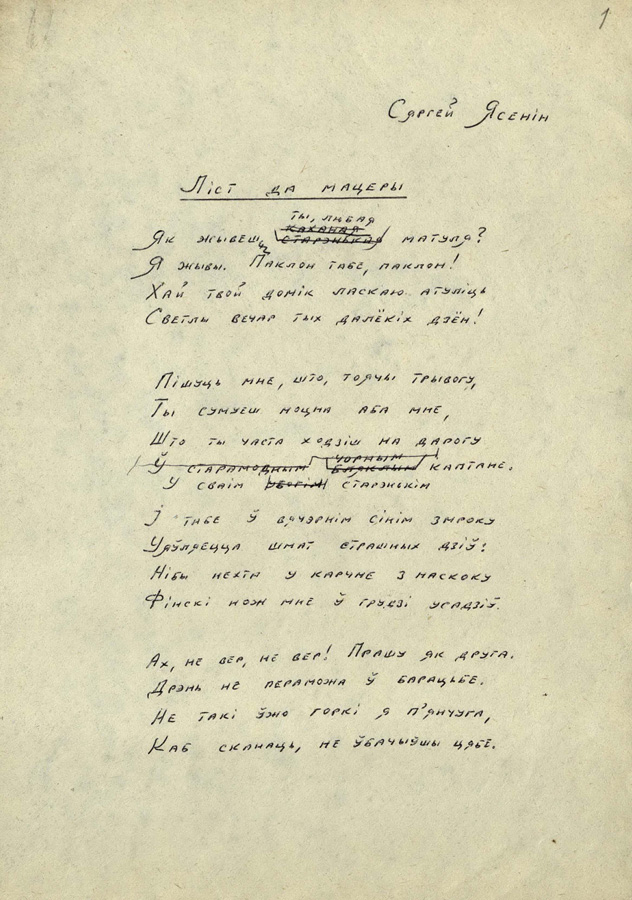 1
Сяргей Ясенін
Ліст да мацеры
ты, любая
каханая
Як жывеш, старэнькая матуля?
Я жывы. Паклон табе, паклон!
Хай твой домік ласкаю атуліць
Светлы вечар тых далёкіх дзён!
Пішуць мне, што, тоячы трывогу,
Ты сумуеш моцна аба мне,
Што ты часта ходзіш на дарогу
чорным
Ў старамодным бляклым каптане.
У сваім убогім старэнькім
І табе ў вячэрнім сінім змроку
Уяўляецца шмат страшных дзіў:
Нібы нехта у карчме з наскоку
Фінскі нож мне ў грудзі усадзіў.
Ах, не вер, не вер! Прашу як друга.
Дрэнь не пераможа ў барацьбе.
Не такі ўжо горкі я п'янчуга,
Каб сканаць, не ўбачыўшы цябе.